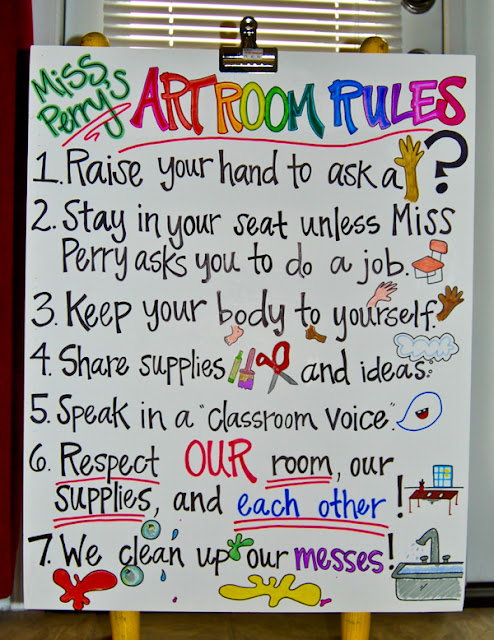 Miss
Perry's
ART ROOM RULES
1. Raise your hand to ask a ?
2. Stay in your seat unless Miss
Perry asks you to do a job.
3. Keep your body to yourself.
4. Share supplies and ideas.
5. Speak in a "classroom voice".
6. Respect OUR room, our
supplies, and each other!
7. We clean up our messes!